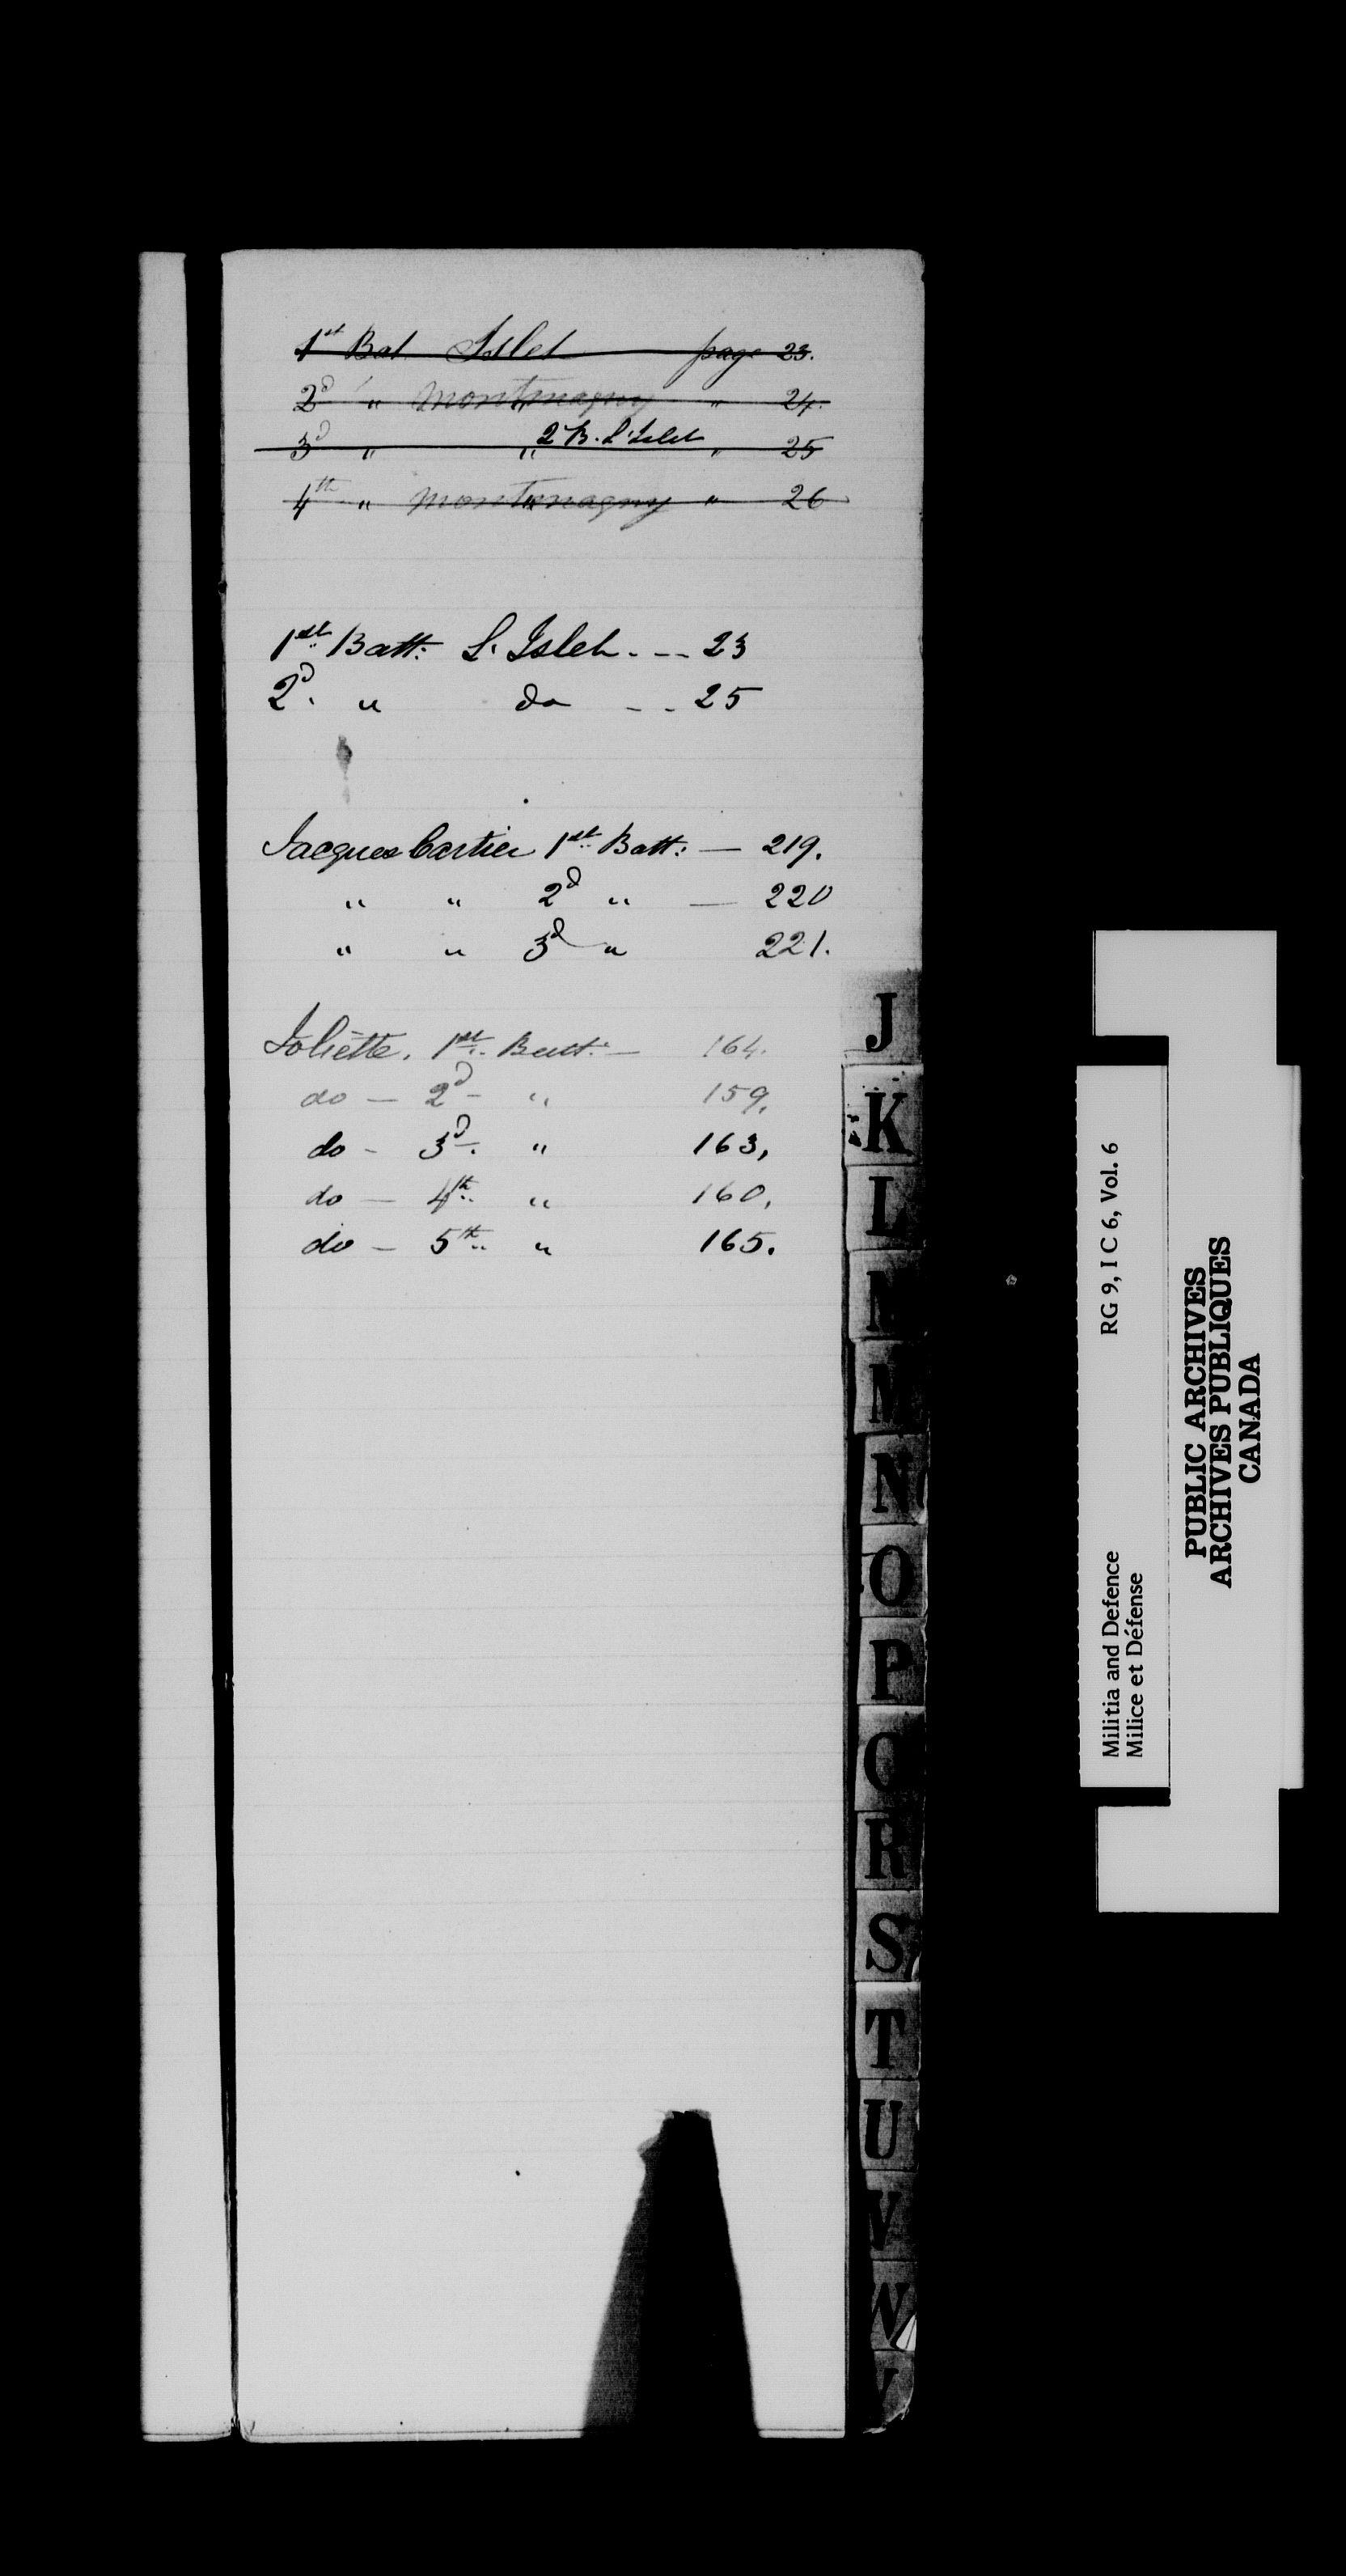 1st Bat Islet page 23.
2d " Montmagny " 24.
3d " " 2 B. L'Islet " 25
4th " Montmagny " 26
1st Batt: L'Islet. -- 23
2d. " do -- 25
Jacques Cartier 1st Batt: — 219.
" " 2d " — 220
" " 3d " 221.
Joliette. 1st Batt: — 164.
do — 2d - " 159,
do - 3d. " 163,
do — 4th " 160,
do — 5th " 165.
J
K
L
M
M
N
O
P
Q
R
S
T
U
V
W
Y
Militia and Defence RG 9, I C 6, Vol. 6
Milice et Défense
PUBLIC ARCHIVES
ARCHIVES PUBLIQUES
CANADA